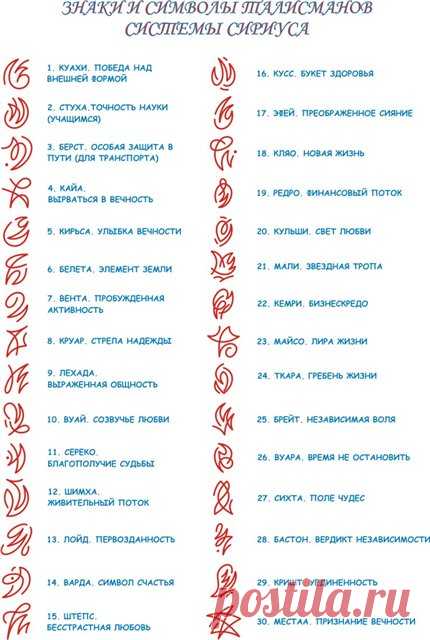 ЗНАКИ И СИМВОЛЫ ТАЛИСМАНОВ
СИСТЕМЫ СИРИУСА
1. КУАХИ. ПОБЕДА НАД
ВНЕШНЕЙ ФОРМОЙ
2. СТУХА.ТОЧНОСТЬ НАУКИ
(УЧАЩИМСЯ)
3. БЕРСТ. ОСОБАЯ ЗАЩИТА В
ПУТИ (ДЛЯ ТРАНСПОРТА)
4. КАЙА.
ВЫРВАТЬСЯ В ВЕЧНОСТЬ
5. КИРЬСА. УЛЫБКА ВЕЧНОСТИ
6. БЕЛЕТА. ЭЛЕМЕНТ ЗЕМЛИ
7. ВЕНТА. ПРОБУЖДЕННАЯ
АКТИВНОСТЬ
8. КРУАР. СТРЕЛА НАДЕЖДЫ
9. ЛЕХАДА.
ВЫРАЖЕННАЯ ОБЩНОСТЬ
10. ВУАЙ. СОЗВУЧЬЕ ЛЮБВИ
11. СЕРЕКО.
БЛАГОПОЛУЧИЕ СУДЬБЫ
12. ШИМХА.
ЖИВИТЕЛЬНЫЙ ПОТОК
13. ЛОЙД. ПЕРВОЗДАННОСТЬ
14. ВАРДА. СИМВОЛ СЧАСТЬЯ
15. ШТЕПС.
БЕССТРАСТНАЯ ЛЮБОВЬ
16. КУСС. БУКЕТ ЗДОРОВЬЯ
17. ЭФЕЙ. ПРЕОБРАЖЕННОЕ СИЯНИЕ
18. КЛЯО. НОВАЯ ЖИЗНЬ
19. РЕДРО. ФИНАНСОВЫЙ ПОТОК
20. КУЛЬШИ. СВЕТ ЛЮБВИ
21. МАЛИ. ЗВЕЗДНАЯ ТРОПА
22. КЕМРИ. БИЗНЕСКРЕДО
23. МАЙСО. ЛИРА ЖИЗНИ
24. ТКАРА. ГРЕБЕНЬ ЖИЗНИ
25. БРЕЙТ. НЕЗАВИСИМАЯ ВОЛЯ
26. ВУАРА. ВРЕМЯ НЕ ОСТАНОВИТЬ
27. СИХТА. ПОЛЕ ЧУДЕС
28. БАСТОН. ВЕРДИКТ НЕЗАВИСИМОСТИ
29. КРИШТ. УЕДИНЕННОСТЬ
30. МЕСТАА. ПРИЗНАНИЕ ВЕЧНОСТИ
postila.ru